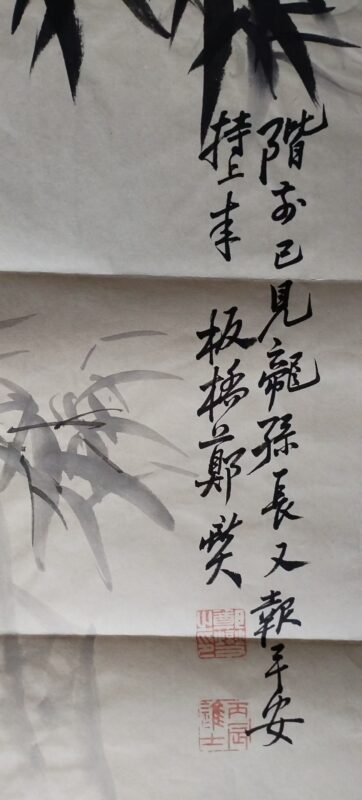 階前已見龍孫長又報平安
特上来
板橋鄭燮
鄭燮之印
丙辰進士